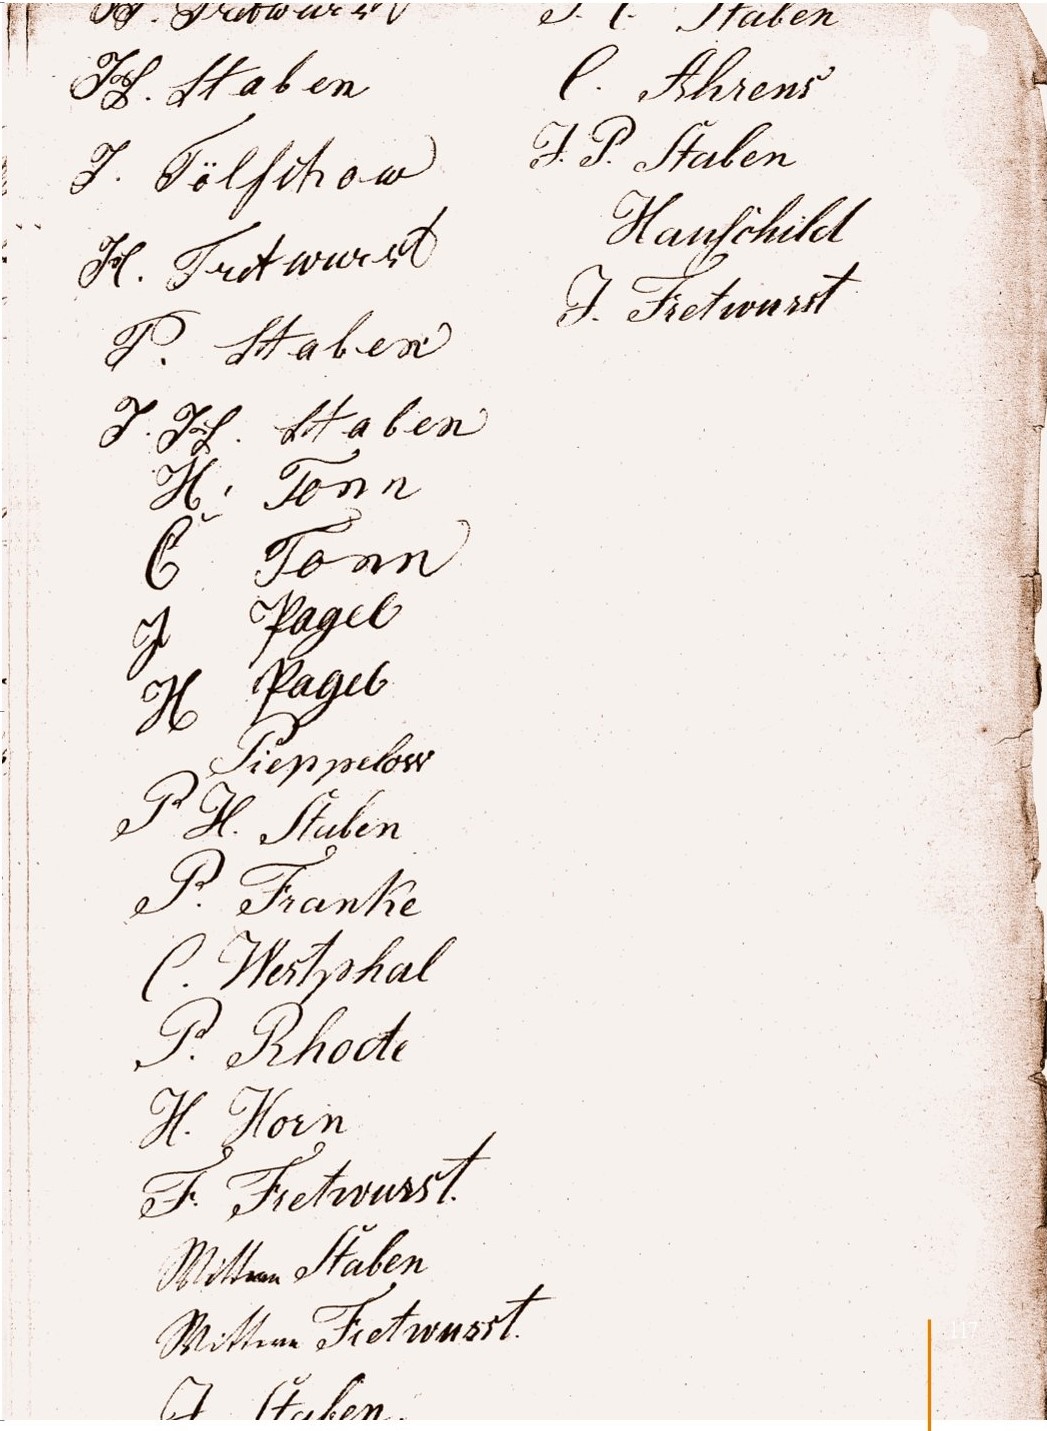 Fretwurst
H. Staben
J. Tölschow
H. Fretwurst
P. Staben
J. H. Staben
H. Tonn
C Tonn
J Pagel
H Pagel
Pieppelow
P H. Staben
P. Franke
C. Westphal
P. Rhode
H. Horn
F. Fretwurst.
Wittwe Staben
Wittwe Fretwurst.
J. Staben.
J. C. Staben
C. Ahrens
J. P. Staben
Hauschild
J. Fretwurst
117